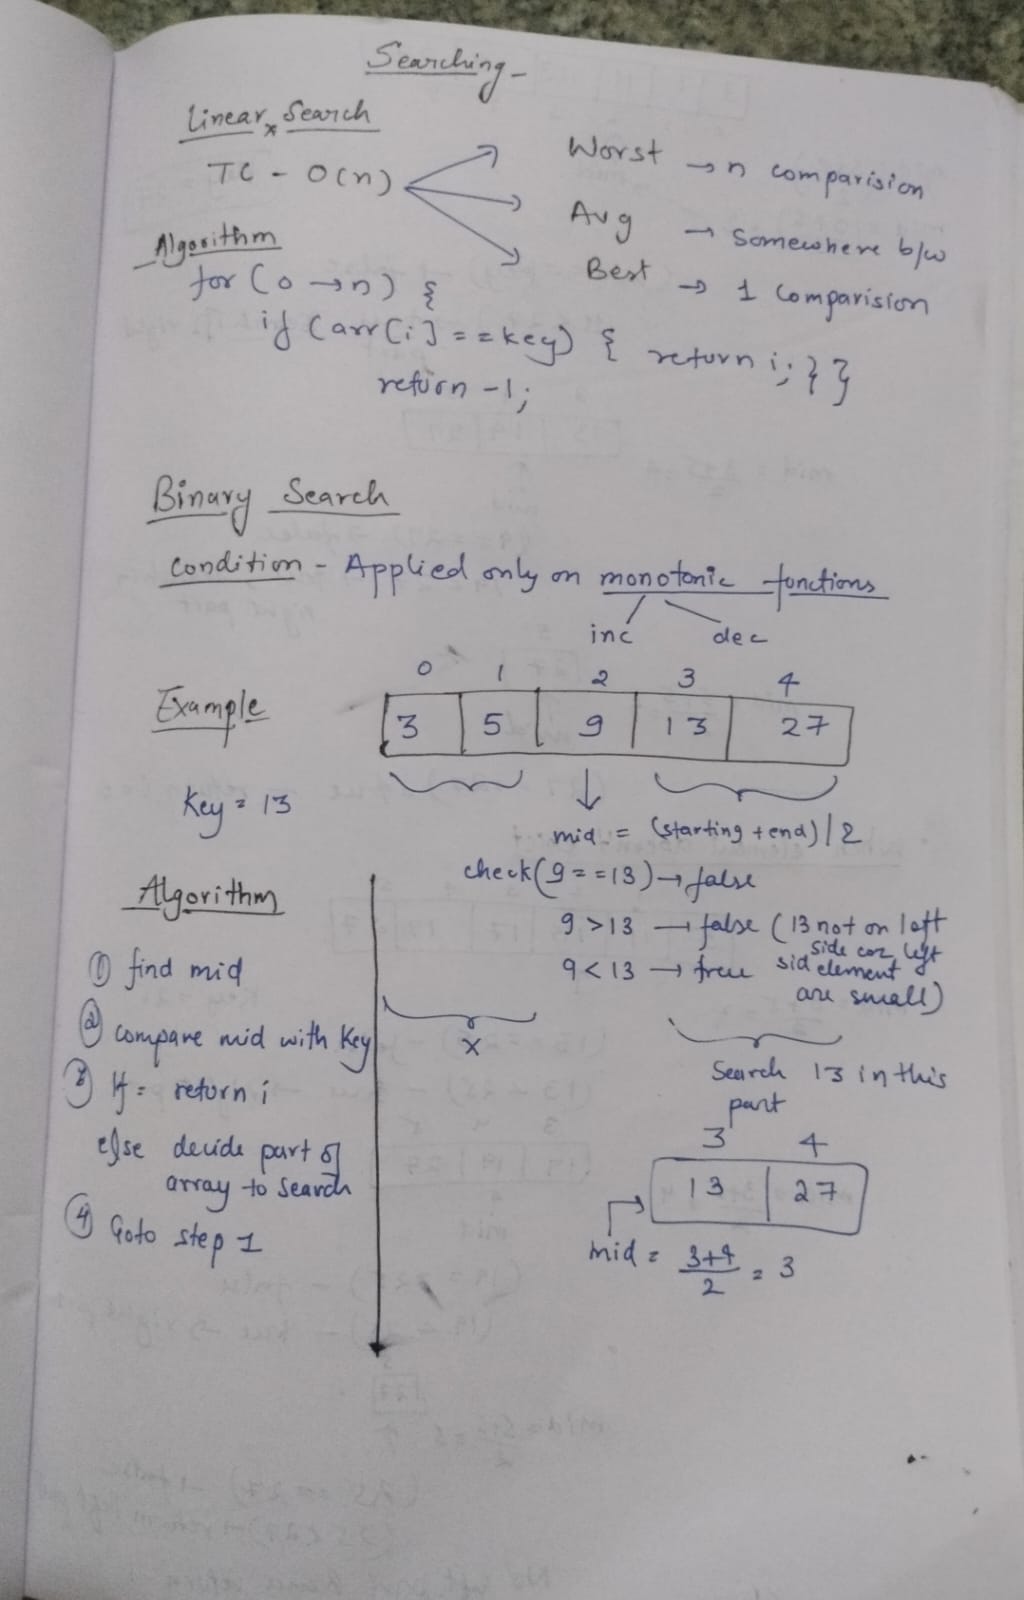 Searching -
Linear Search
TC - O(n)
Worst → n comparision
Avg → Somewhere b/w
Best → 1 Comparision
Algorithm
for (0 → n) {
if (arr[i] == key) { return i; } }
return -1;
Binary Search
Condition - Applied only on monotonic functions
inc dec
0 1 2 3 4
Example 3 5 9 13 27
Key = 13
mid = (starting + end) / 2
check (9 == 13) → false
9 > 13 → false (13 not on left
side coz left
9 < 13 → true sid element
are small)
x
Search 13 in this
part
3 4
13 27
mid = 3+4 / 2 = 3
Algorithm
① find mid
② compare mid with Key
③ If = return i
else decide part of
array to search
④ Goto step 1